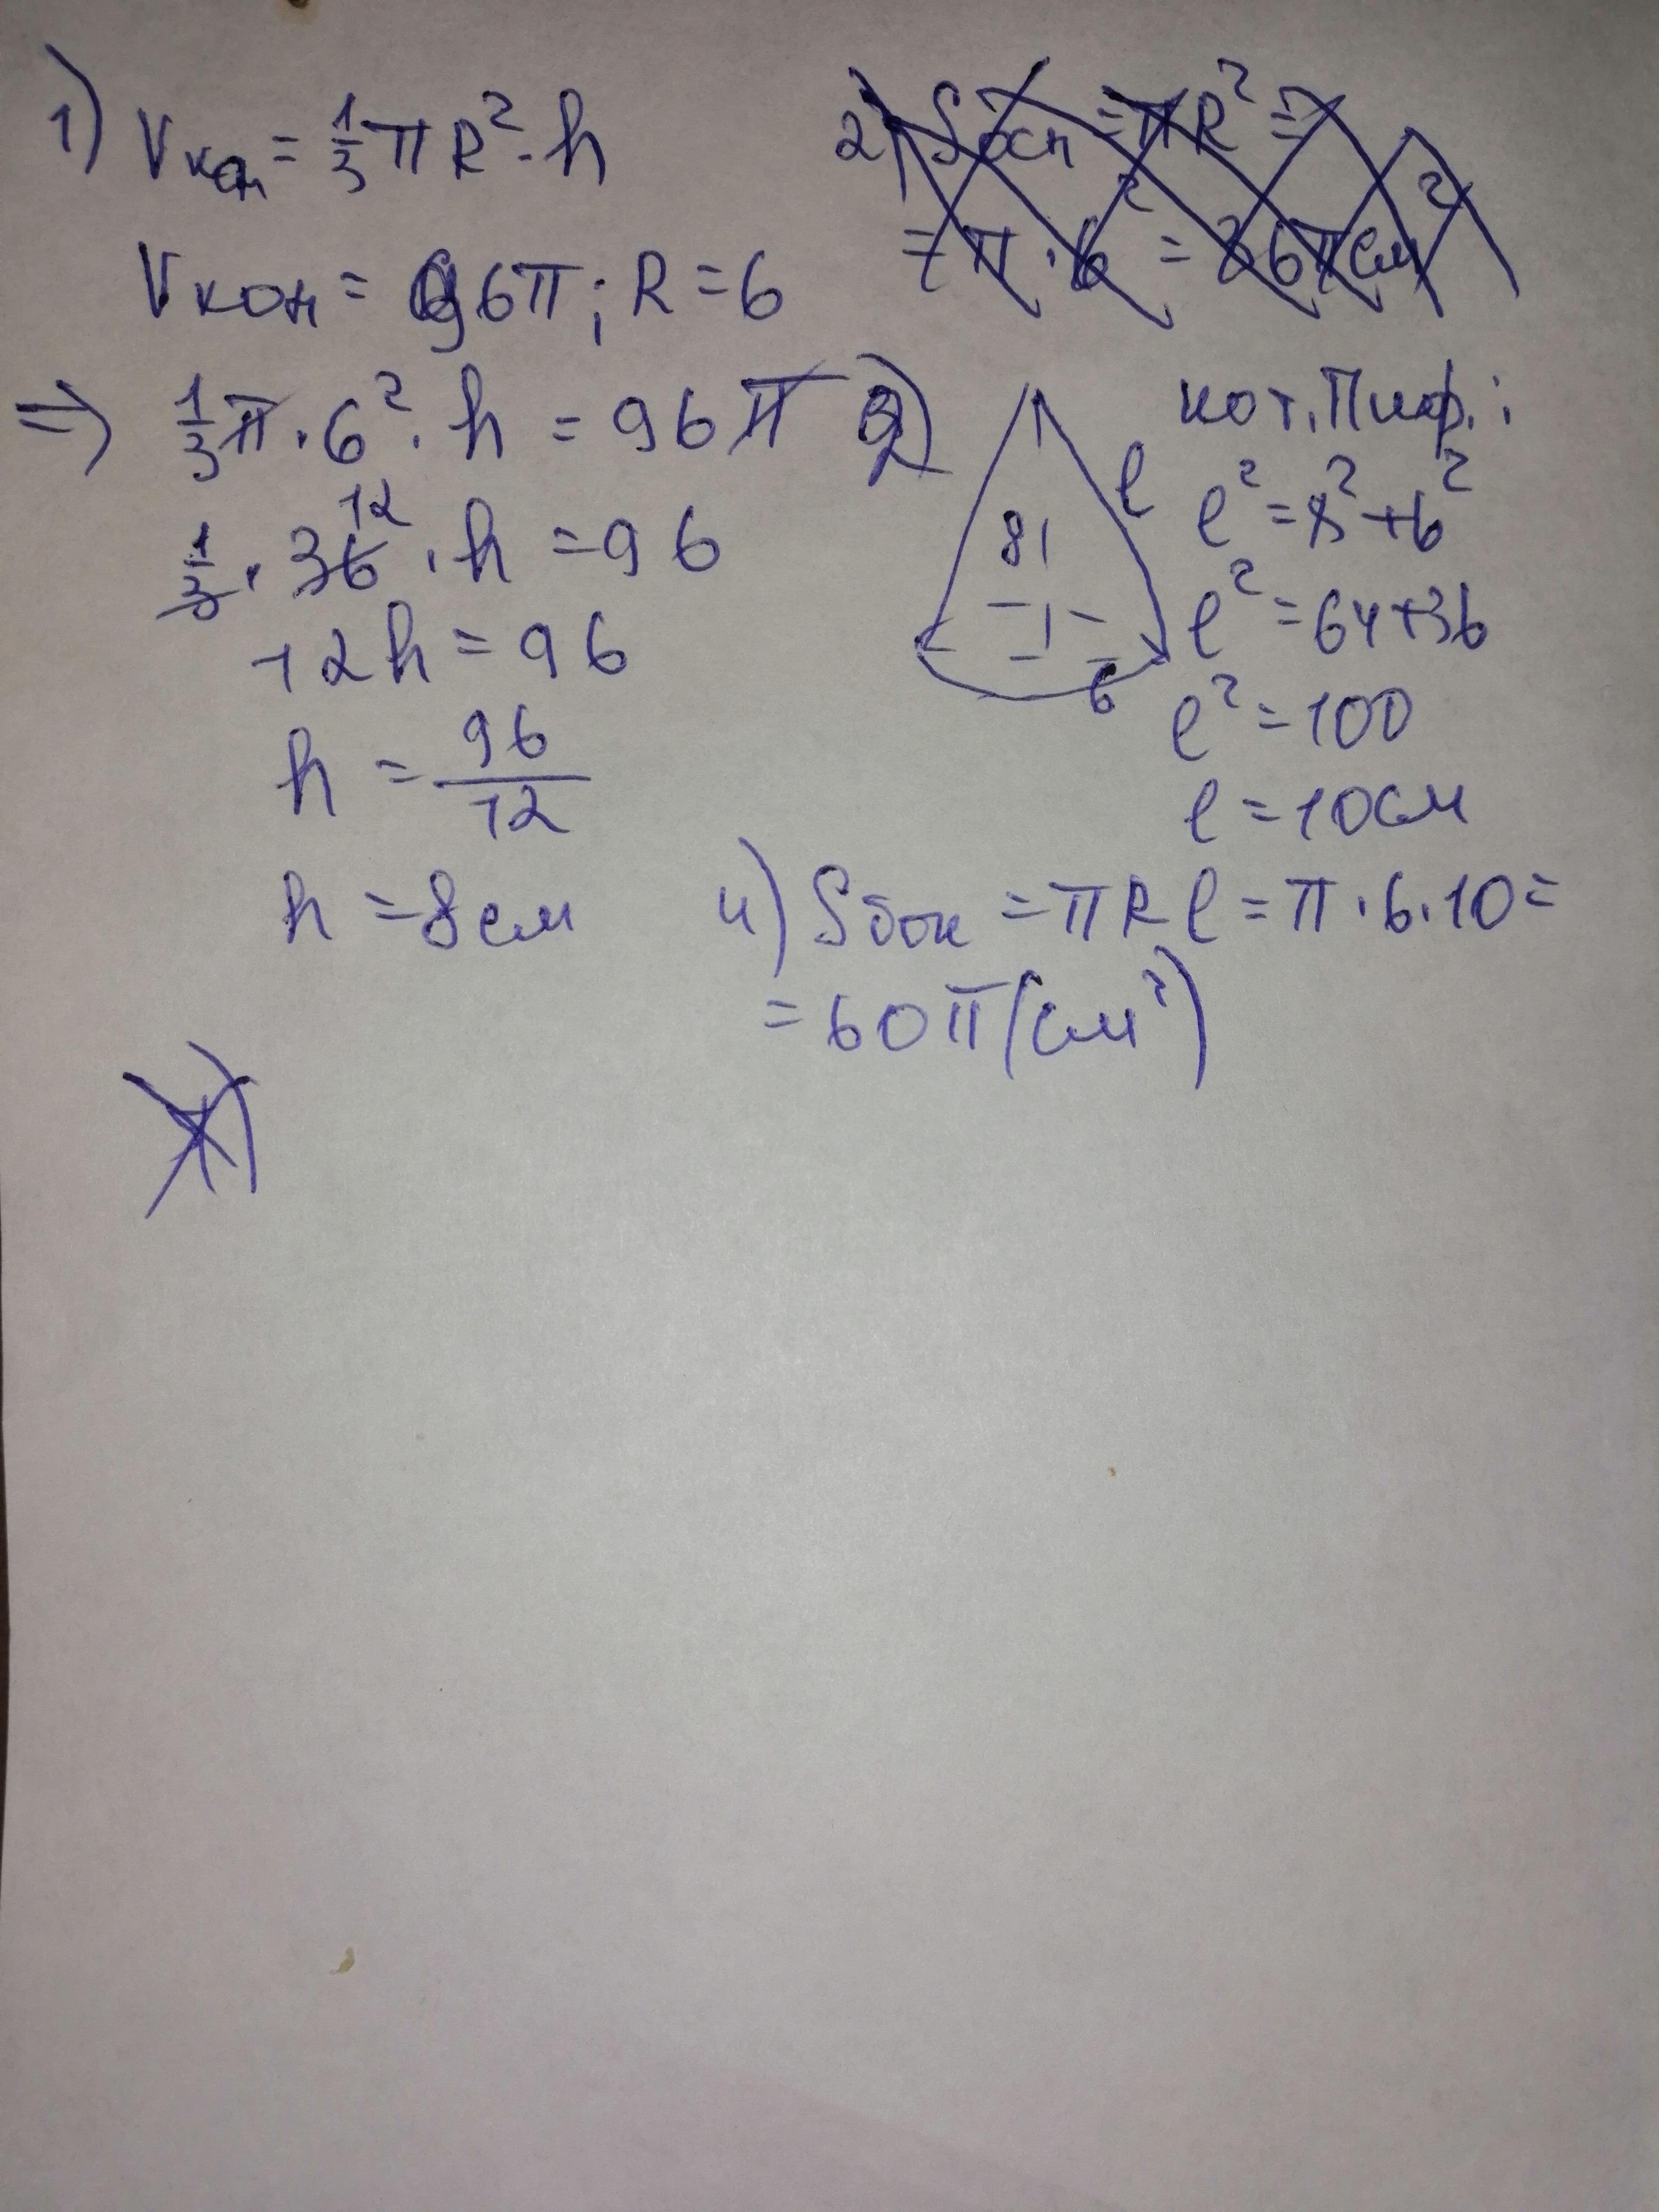 1) Vкон = 1/3 πR² · h
Vкон = 96π; R = 6
⇒ 1/3 π · 6² · h = 96π
1/3 · 36 12 · h = 96
12h = 96
h = 96/12
h = 8см
2) Sосн = πR² =
= π · 6² = 36π см²
2)
8
l
6
по т. Пиф.:
l² = 8² + 6²
l² = 64 + 36
l² = 100
l = 10см
4) Sбок = πRl = π · 6 · 10 =
= 60π (см²)